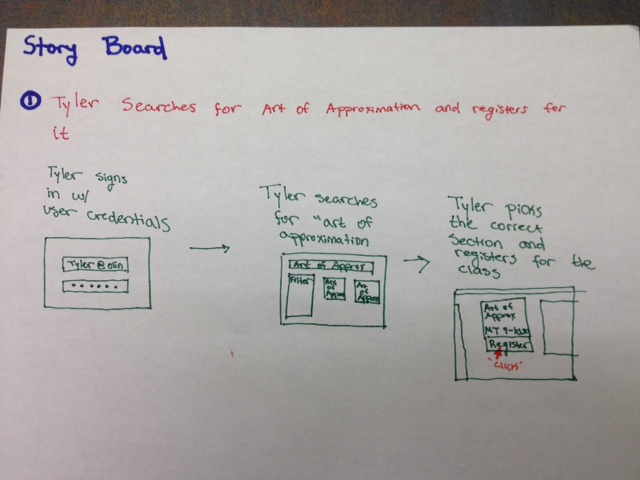 Story Board
① Tyler Searches for Art of Approximation and registers for
it
Tyler signs
in w/
user credentials
Tyler@olin
Tyler searches
for "art of
approximation
Art of Approx
Filter
Art
of
Approx
Art
of
Approx
Tyler picks
the correct
section and
registers for the
class
Art of
Approx
Register
"click"